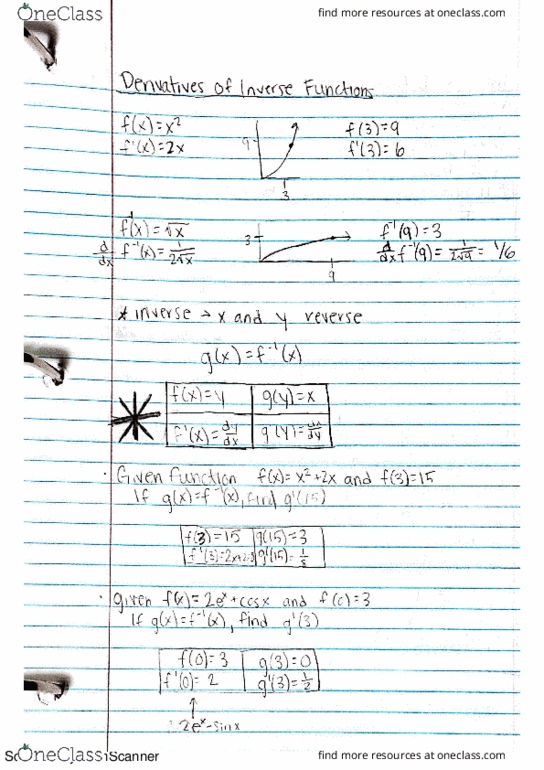 OneClass
find more resources at oneclass.com
Derivatives of Inverse Functions
f(x)=x²
f'(x)=2x
9
3
f(3)=9
f'(3)=6
f⁻¹(x)=√x
d/dx f⁻¹(x)=1/2√x
3
9
f⁻¹(9)=3
d/dx f⁻¹(9)=1/2√9=1/6
* inverse → x and y reverse
g(x)=f⁻¹(x)
f(x)=y g(y)=x
f'(x)=dy/dx g'(y)=dx/dy
· Given function f(x)=x²+2x and f(3)=15
If g(x)=f⁻¹(x), find g'(15)
f(3)=15 g(15)=3
f'(3)=2x+2 g'(15)=1/8
· given f(x)=2eˣ+cosx and f(0)=3
If g(x)=f⁻¹(x), find g'(3)
f(0)=3 g(3)=0
f'(0)=2 g'(3)=1/2
↑
2eˣ-sinx
OneClass
Scanner
find more resources at oneclass.com